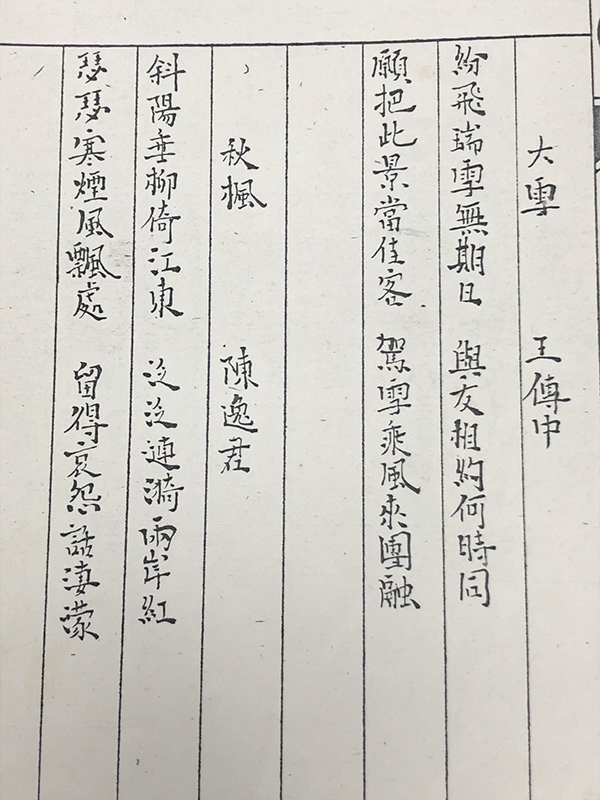 大雪 王傳中
紛飛瑞雪無期日 與友相約何時同
願把此景當佳客 駕雪乘風來團融
秋楓 陳逸君
斜陽垂柳倚江東 泛泛連漪兩岸紅
瑟瑟寒煙風飄處 留得哀怨話淒濛